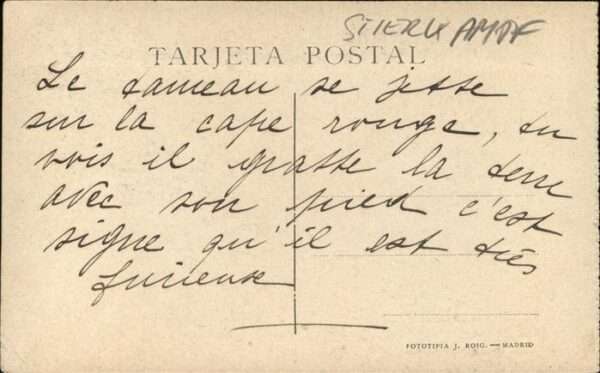 STIERKAMPF
TARJETA POSTAL
Le taureau se jette
sur la cape rouge, tu
vois il gratte la terre
avec son pied c'est
signe qu'il est très
furieux
FOTOTIPIA J. ROIG.—MADRID